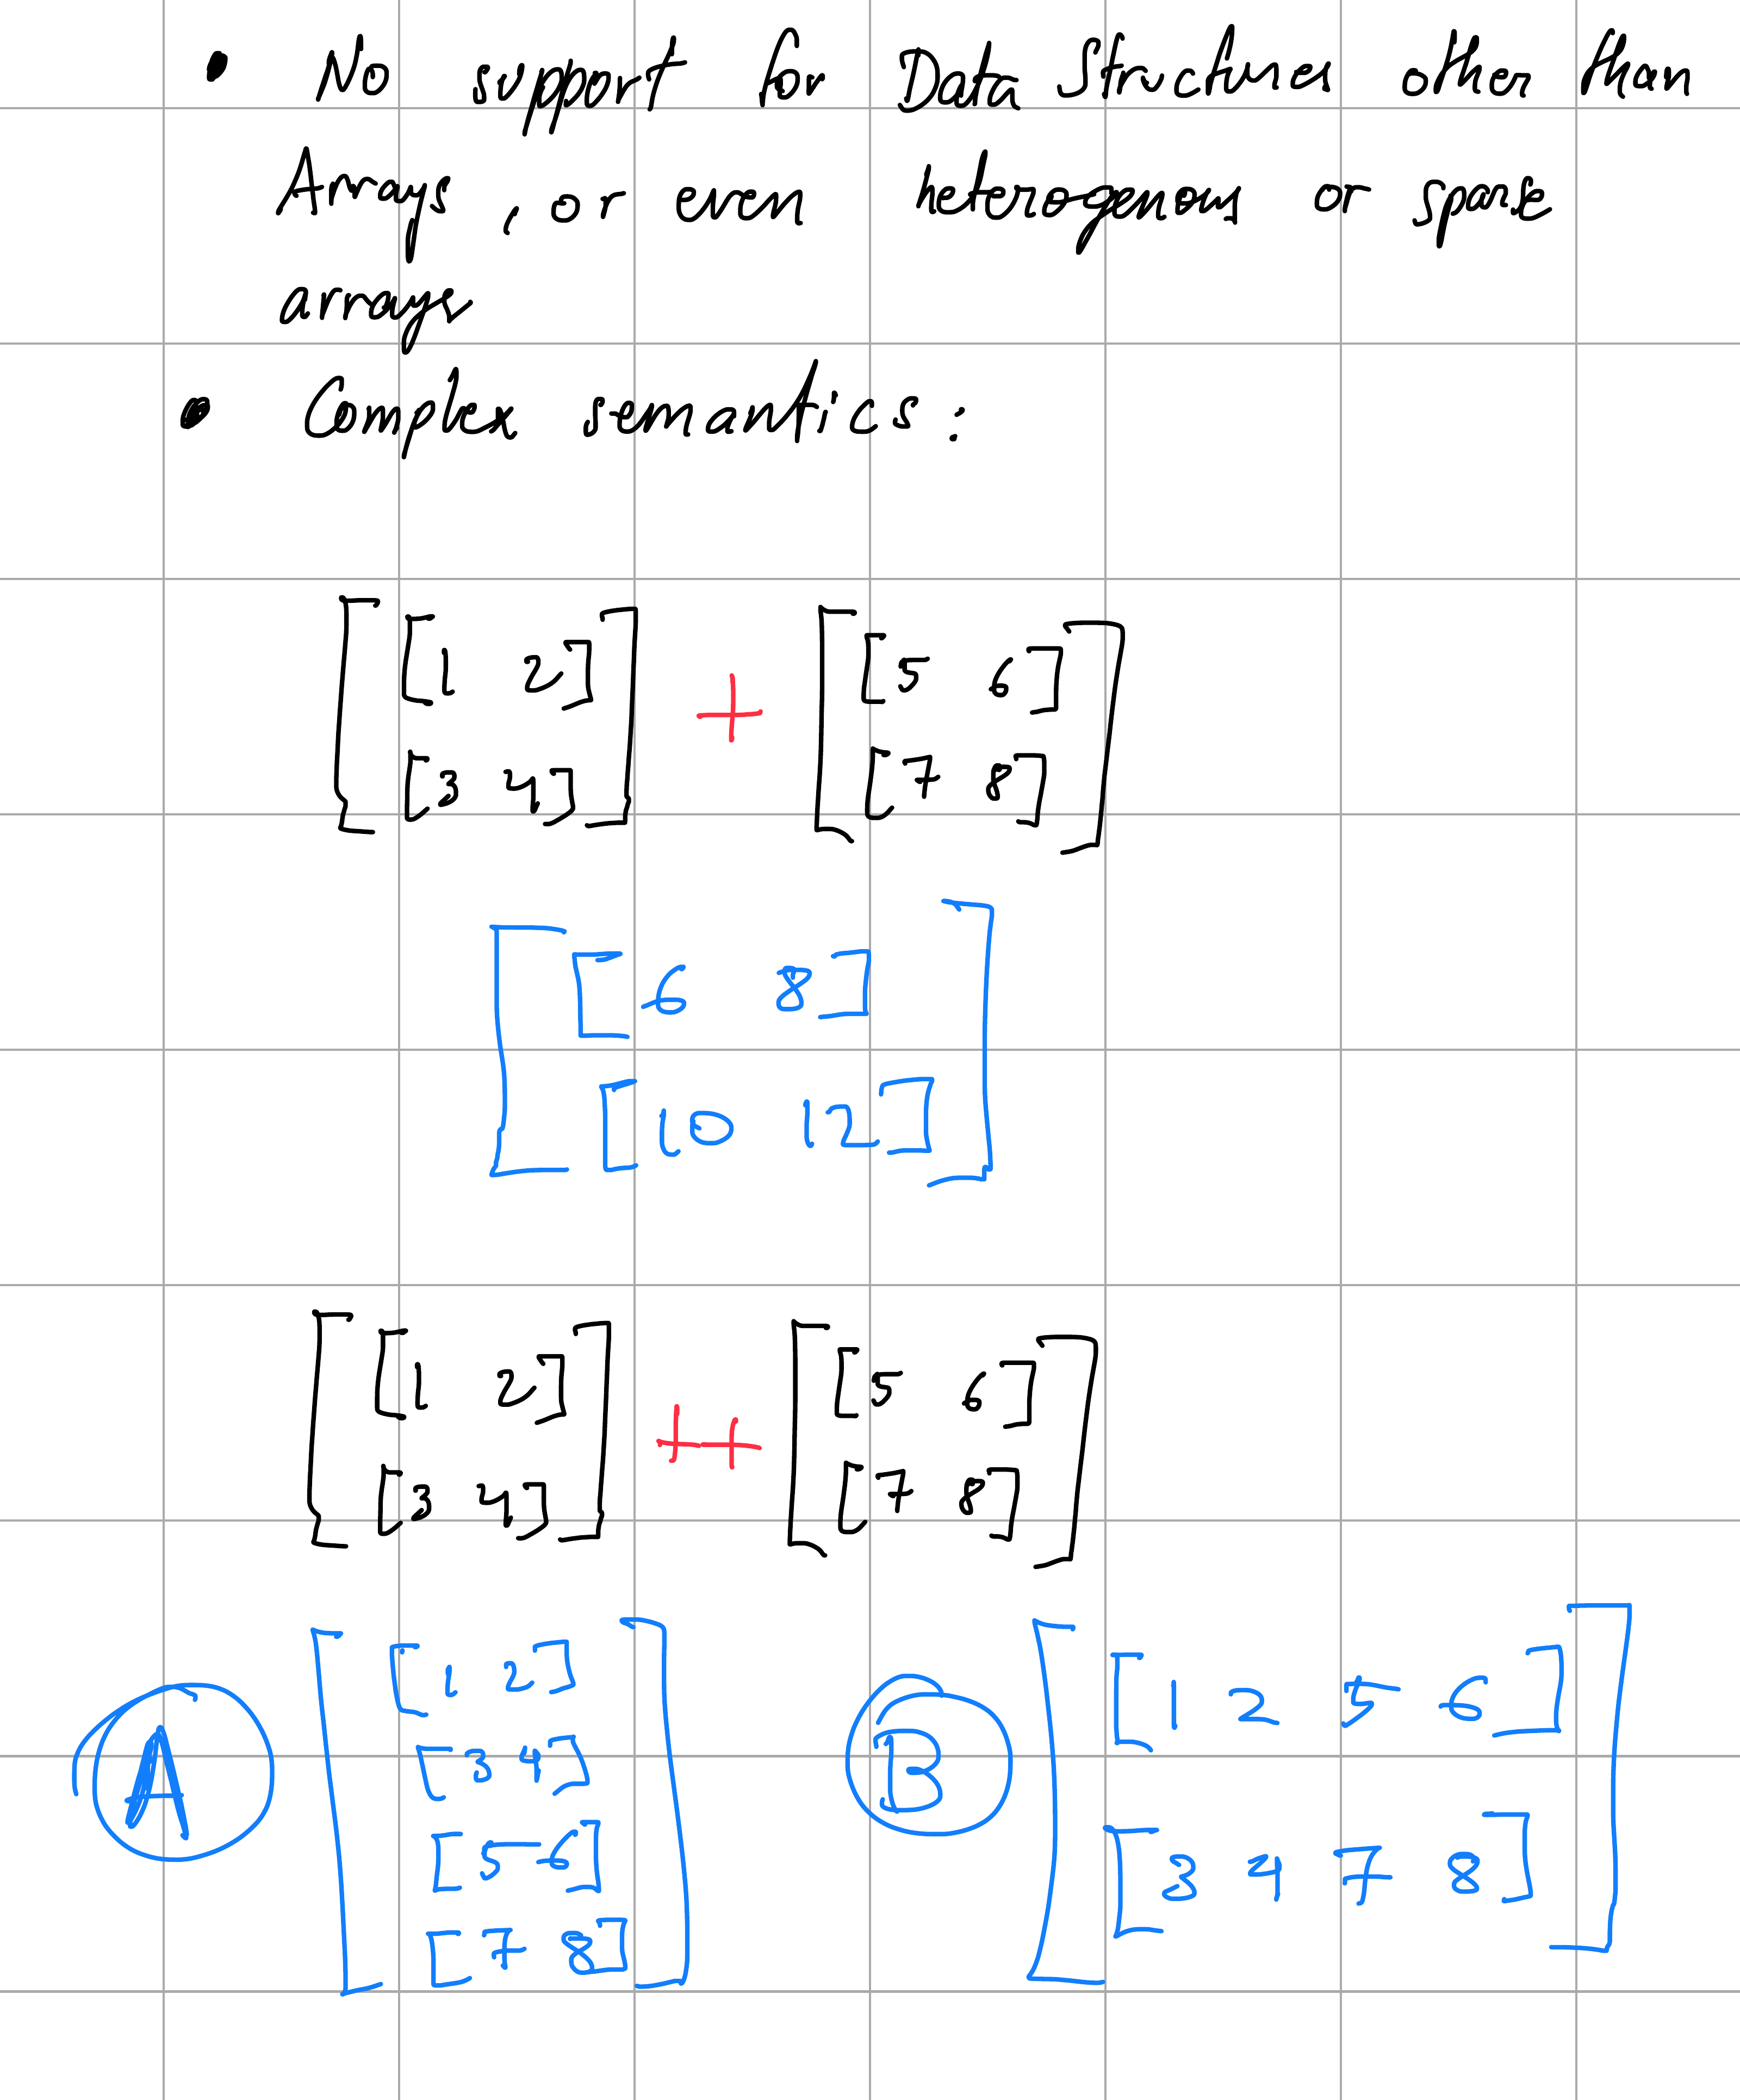 • No support for Data Structures other than
Arrays, or even heterogenous or sparse
arrays
• Complex semantics:
[ [1 2] ] + [ [5 6] ]
[ [3 4] ] [ [7 8] ]
[ [6 8]
[10 12] ]
[ [1 2] ] ++ [ [5 6] ]
[ [3 4] ] [ [7 8] ]
A
[ [1 2]
[3 4]
[5 6]
[7 8] ]
B
[ [1 2 5 6]
[3 4 7 8] ]